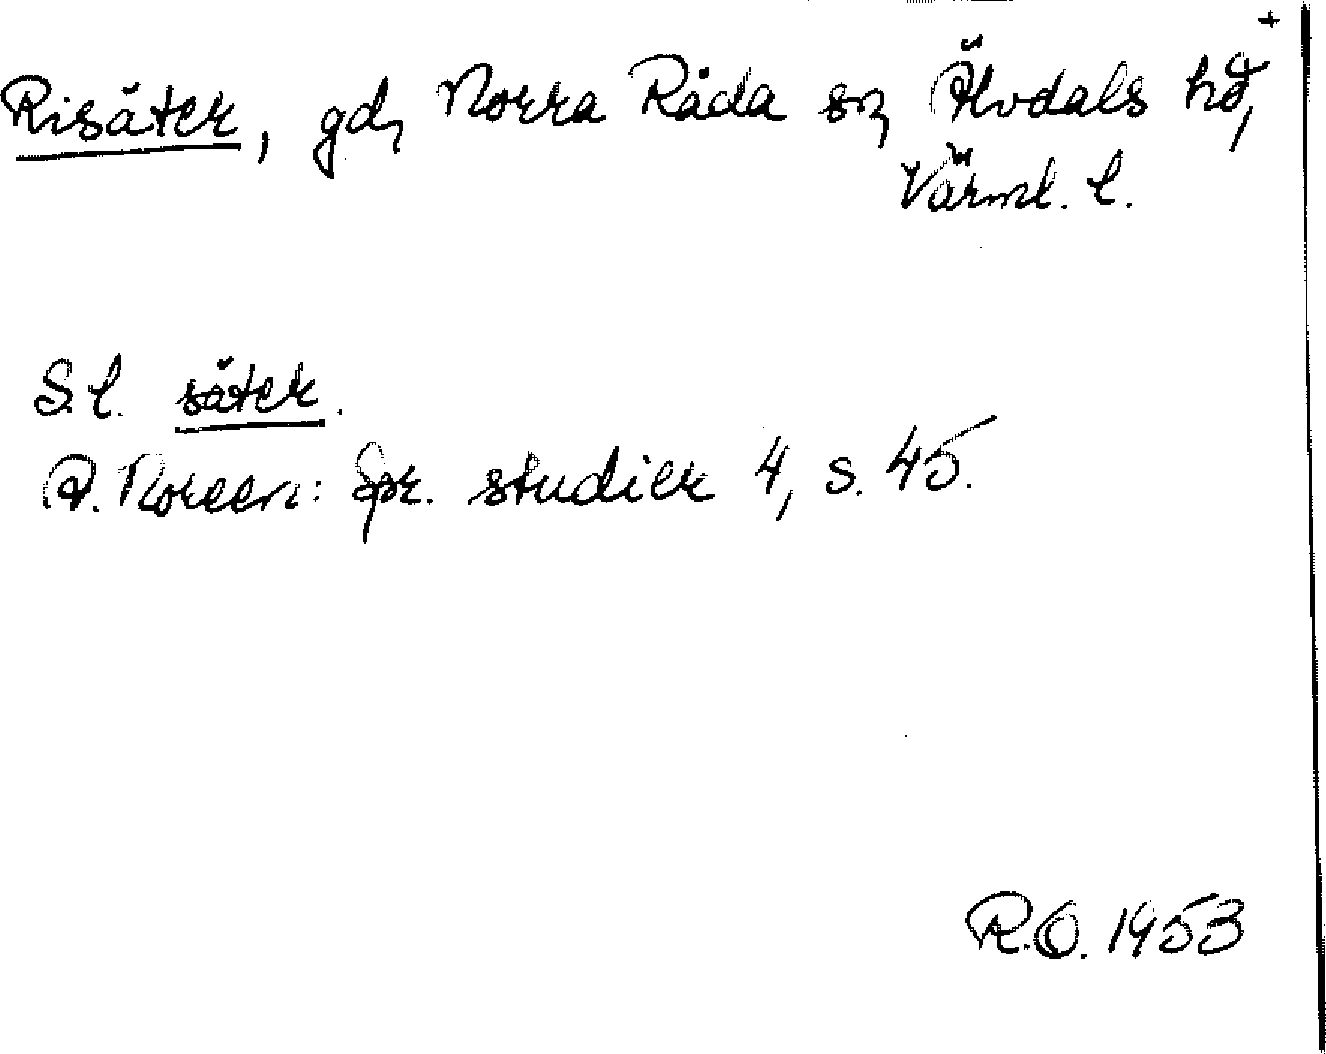 +
Risäter, gd, Norra Råda sn, Älvdals hd,
Värml. l.
S.l. säter.
A. Noreen: Spr. studier 4, s. 45.
R.O. 1953